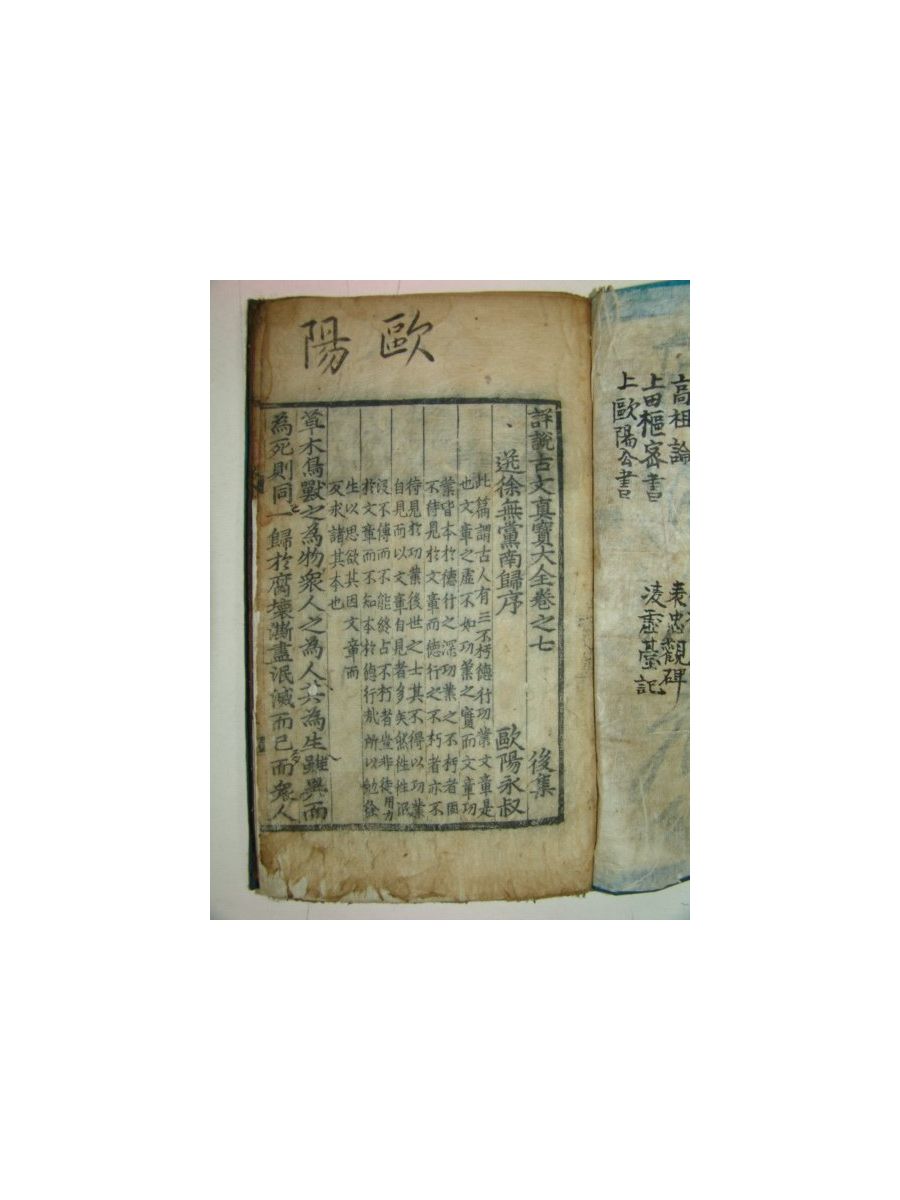 高祖論
上田樞密書
上歐陽公書
表忠觀碑
凌虛臺記
歐陽
詳說古文眞寶大全卷之七 後集
送徐無黨南歸序 歐陽永叔
此篇謂古人有三不朽德行功業文章是
也文章之虛不如功業之實而文章功
業皆本於德行之深功業之不朽者固
不待見於文章而德行之不朽者亦不
待見於功業後世之士其不得以功業
自見而以文章自見者多矣然徃徃泯
沒不傳而不能終占不朽者豈非徒用力
於文章而不知本於德行哉所以勉徐
生以思欲其因文章而
反求諸其本也
草木鳥獸之為物衆人之為人其為生雖異而
為死則同一歸於腐壞澌盡泯滅而已而衆人